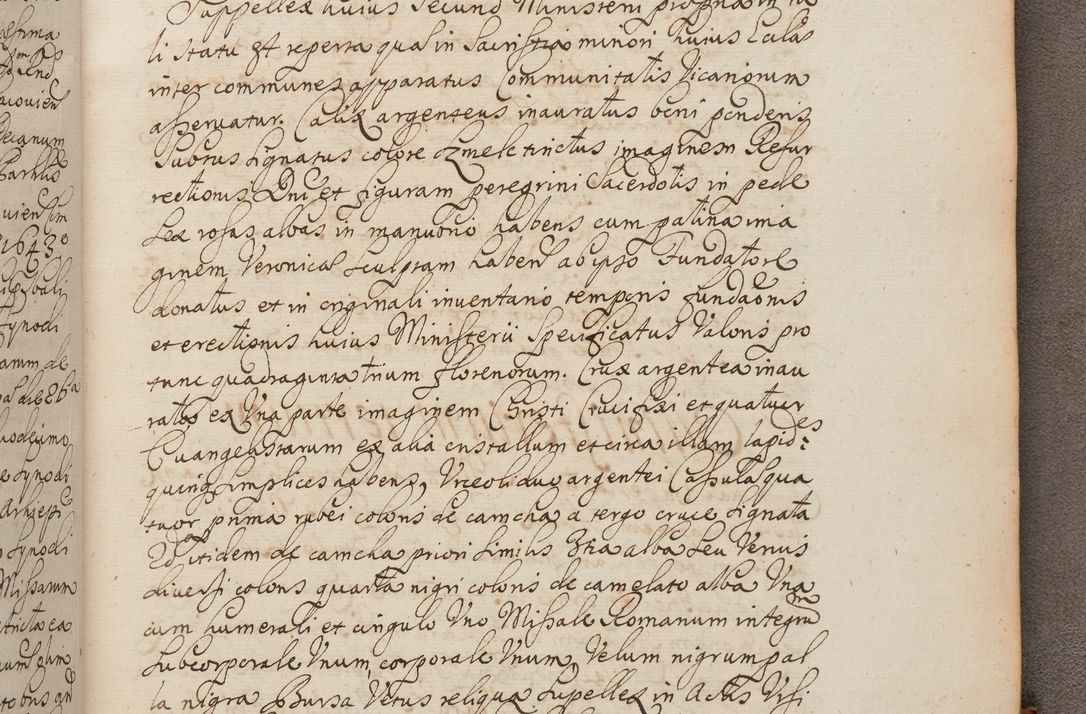 Suppellex huius Secundi Ministerii propria in ta
li statu est reperta quae in Sacristia minori huius Eccla
inter communes apparatus Communitatis Vicariorum
asservatur. Calix argenteus inauratus boni ponderis
Subtus signatus colore szmelc tinctus imaginem Resur
rectionis Dni et figuram peregrini Sacerdotis in pede
sex rosas albas in manubrio habens cum patina ima
ginem Veronicae sculptam haben ab ipso Fundatore
donatus et in originali inventario temporis fundaonis
et erectionis huius Ministerii specificatus valoris pro
tunc quadraginta trium florenorum. Crux argentea inau
rata ex Una parte imaginem Christi Crucifixi et quatuor
Evangelistarum ex alia cristallum et circa illam lapides
quinq simplices habens, Urceoli duo argentei Cassula qua
tuor prima rubei coloris de camcha a tergo cruce signata
2da itidem de camcha priori similis 3tia alba seu Venus
diversi coloris quarta nigri coloris de camelato alba Una
cum humerali et cingulo Uno Missale Romanum integrum
Subcorporale Unum, corporale Unum, Velum nigrum pal
la nigra Bursa Vetus reliqua supellex in Actis Visi
assima
Decanum
1643º
Synodi
arum de
1686
Synodi
Synodi
Missarum